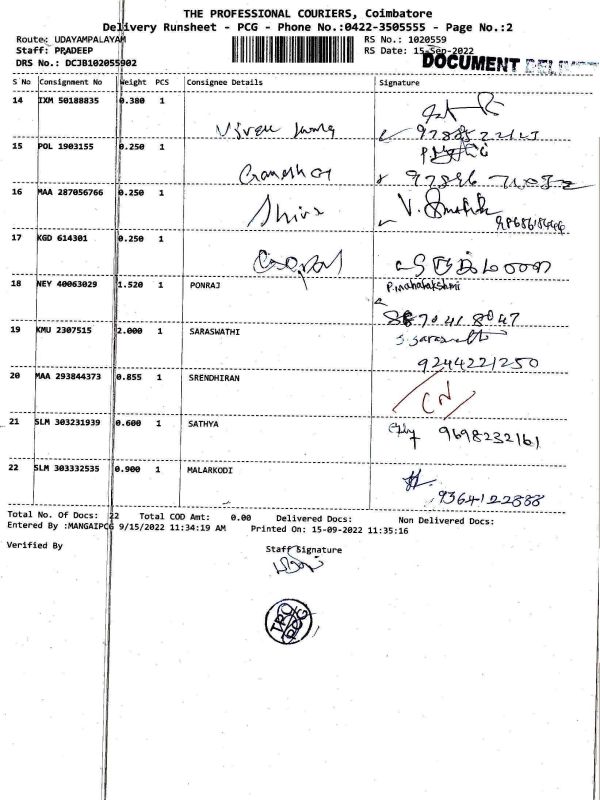 THE PROFESSIONAL COURIERS, Coimbatore
Delivery Runsheet - PCG - Phone No.:0422-3505555 - Page No.:2
Route: UDAYAMPALAYAM RS No.: 1020559
Staff: PRADEEP RS Date: 15-Sep-2022
DOCUMENT
DRS No.: DCJB102055902
S No Consignment No Weight PCS Consignee Details Signature
14 IXM 50188835 0.380 1
15 POL 1903155 0.250 1
Ganesh
16 MAA 287056766 0.250 1
Shiva V.
17 KGD 614301 0.250 1
Gopal
18 NEY 40063029 1.520 1 PONRAJ P.mahalakshmi
19 KMU 2307515 2.000 1 SARASWATHI
9244221250
20 MAA 293844373 0.855 1 SRENDHIRAN
CN
21 SLM 303231939 0.600 1 SATHYA
9698232161
22 SLM 303332535 0.900 1 MALARKODI
9364122888
Total No. Of Docs: 22 Total COD Amt: 0.00 Delivered Docs: Non Delivered Docs:
Entered By :MANGAIPCG 9/15/2022 11:34:19 AM Printed On: 15-09-2022 11:35:16
Verified By Staff Signature
TPC
PCG